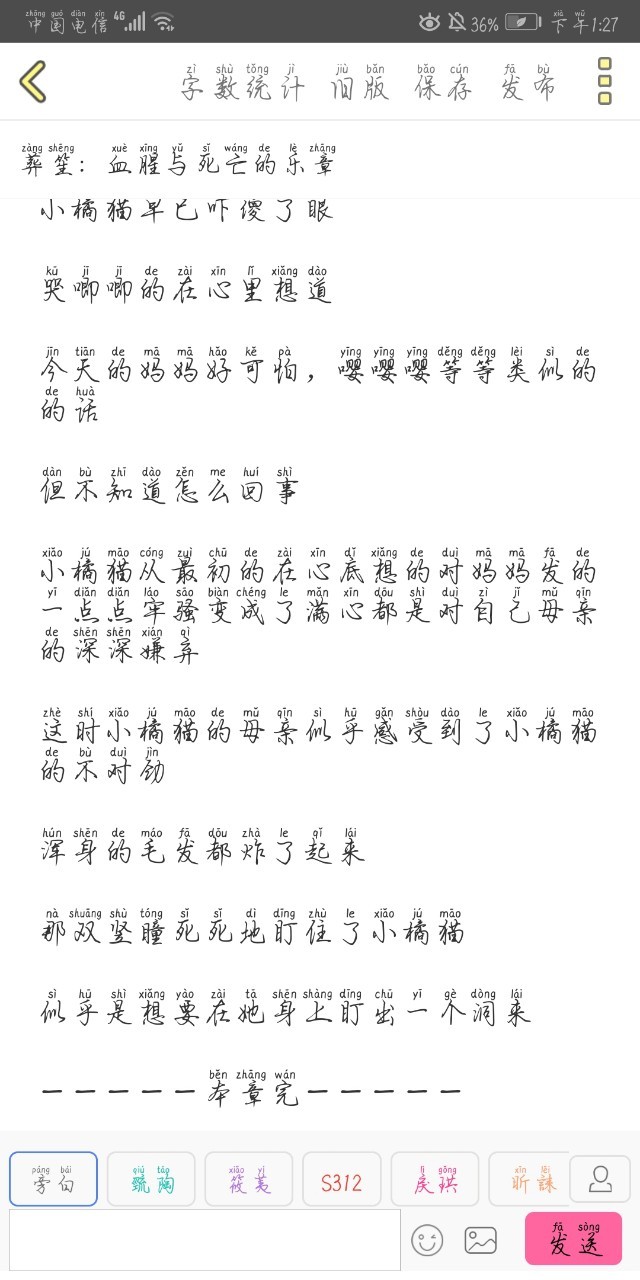 中国电信 4G 36% 下午1:27
字数统计 旧版 保存 发布
葬笙：血腥与死亡的乐章
小橘猫早已吓傻了眼
哭唧唧的在心里想道
今天的妈妈好可怕，嘤嘤嘤等等类似的
的话
但不知道怎么回事
小橘猫从最初的在心底想的对妈妈发的
一点点牢骚变成了满心都是对自己母亲
的深深嫌弃
这时小橘猫的母亲似乎感受到了小橘猫
的不对劲
浑身的毛发都炸了起来
那双竖瞳死死地盯住了小橘猫
似乎是想要在她身上盯出一个洞来
－－－－－本章完－－－－－
旁白 巯陶 筱荑 S312 戾珙 昕誄
发送